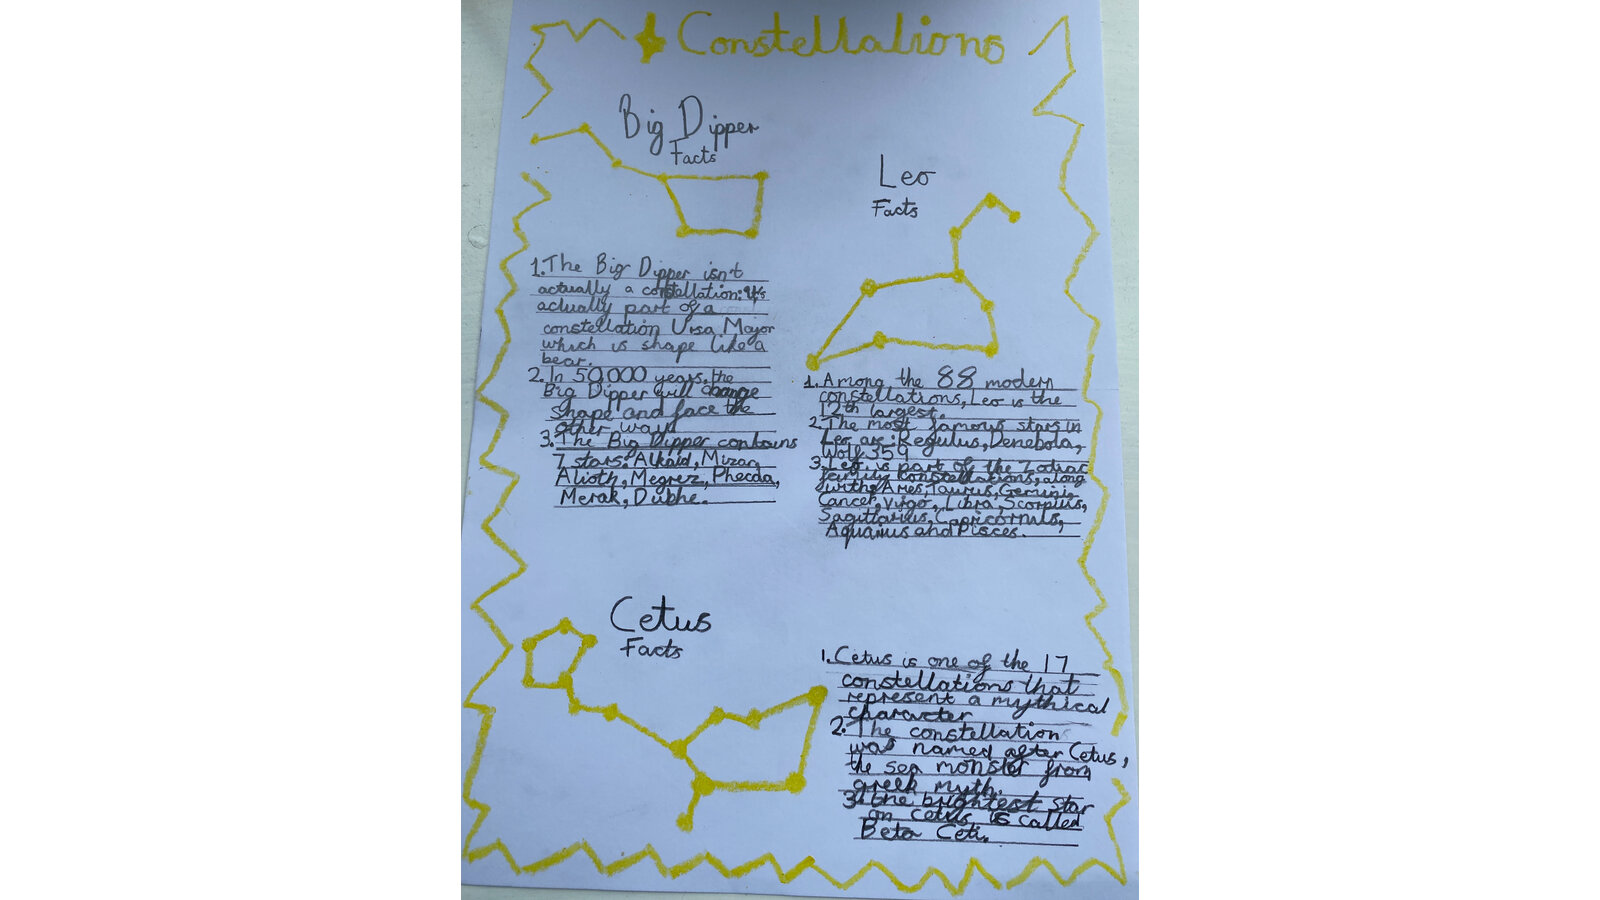 Constellations
Big Dipper
Facts
1. The Big Dipper isn't
actually a constellation: it's
actually part of a
constellation Ursa Major
which is shape like a
bear.
2. In 50,000 years, the
Big Dipper will change
shape and face the
other way!
3. The Big Dipper contains
7 stars: Alkaid, Mizar,
Alioth, Megrez, Phecda,
Merak, Dubhe.
Leo
Facts
1. Among the 88 modern
constellations, Leo is the
12th largest.
2. The most famous stars in
Leo are: Regulus, Denebola,
Wolf 359
3. Leo is part of the Zodiac
family constellations, along
with, Aries, Taurus, Gemini,
Cancer, Virgo, Libra, Scorpius,
Sagittarius, Capricornus,
Aquarius and Pisces.
Cetus
Facts
1. Cetus is one of the 17
constellations that
represent a mythical
character
2. The constellation
was named after Cetus,
the sea monster from
greek myth.
3. the brightest star
on cetus is called
Beta Ceti.